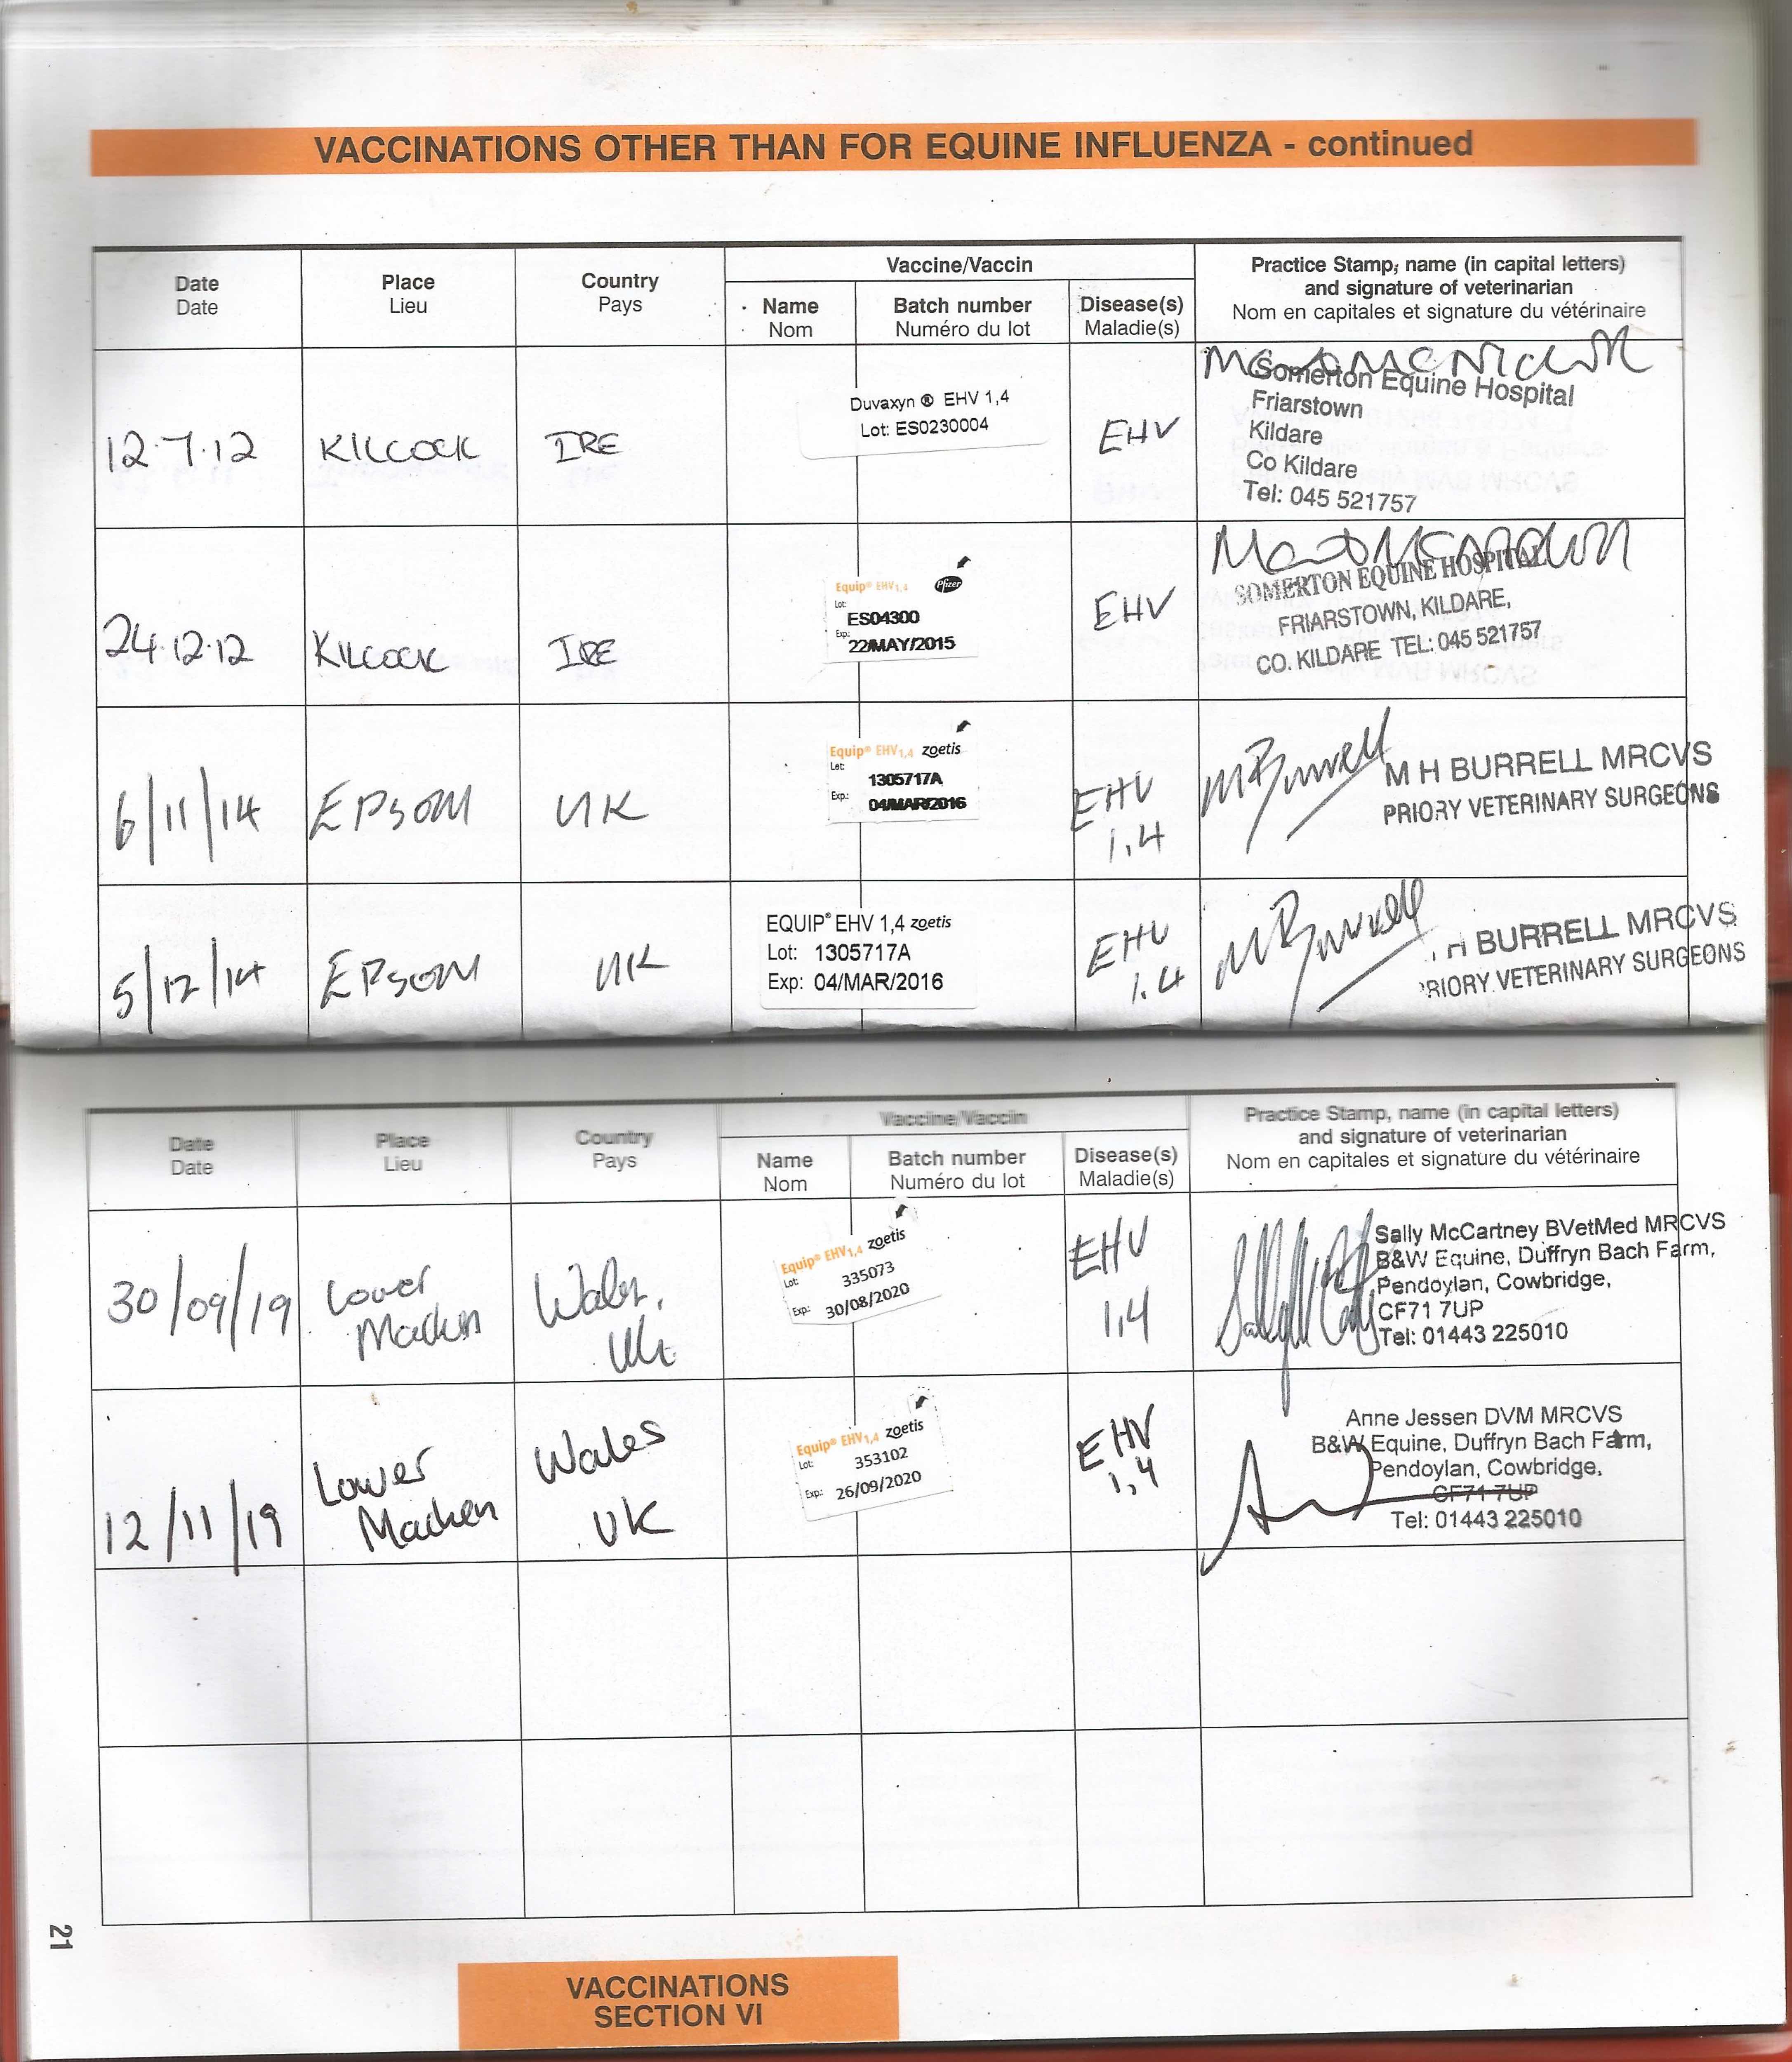 VACCINATIONS OTHER THAN FOR EQUINE INFLUENZA - continued
Date
Date
Place
Lieu
Country
Pays
Vaccine/Vaccin
Name
Nom
Batch number
Numéro du lot
Disease(s)
Maladie(s)
Practice Stamp, name (in capital letters)
and signature of veterinarian
Nom en capitales et signature du vétérinaire
12.7.12
KILCOCK
IRE
Duvaxyn ® EHV 1,4
Lot: ES0230004
EHV
Somerton Equine Hospital
Friarstown
Kildare
Co Kildare
Tel: 045 521757
24.12.12
KILCOCK
IRE
Equip® EHV1,4 Pfizer
Lot:
ES04300
Exp:
22MAY/2015
EHV
SOMERTON EQUINE HOSPITAL
FRIARSTOWN, KILDARE,
CO. KILDARE TEL: 045 521757
6/11/14
EPSOM
UK
Equip® EHV1,4 zoetis
Lot:
1305717A
Exp.:
04/MAR/2016
EHV
1,4
MBurrell
M H BURRELL MRCVS
PRIORY VETERINARY SURGEONS
5/12/14
EPSOM
UK
EQUIP® EHV 1,4 zoetis
Lot: 1305717A
Exp: 04/MAR/2016
EHV
1,4
MBurrell
H BURRELL MRCVS
RIORY VETERINARY SURGEONS
Date
Date
Place
Lieu
Country
Pays
Vaccine/Vaccin
Name
Nom
Batch number
Numéro du lot
Disease(s)
Maladie(s)
Practice Stamp, name (in capital letters)
and signature of veterinarian
Nom en capitales et signature du vétérinaire
30/09/19
Lower
Machen
Wales,
UK
Equip® EHV1,4 zoetis
Lot: 335073
Exp.: 30/08/2020
EHV
1,4
Sally McCartney BVetMed MRCVS
B&W Equine, Duffryn Bach Farm,
Pendoylan, Cowbridge,
CF71 7UP
Tel: 01443 225010
12/11/19
Lower
Machen
Wales
UK
Equip® EHV1,4 zoetis
Lot: 353102
Exp.: 26/09/2020
EHV
1,4
Anne Jessen DVM MRCVS
B&W Equine, Duffryn Bach Farm,
Pendoylan, Cowbridge,
CF71 7UP
Tel: 01443 225010
21
VACCINATIONS
SECTION VI